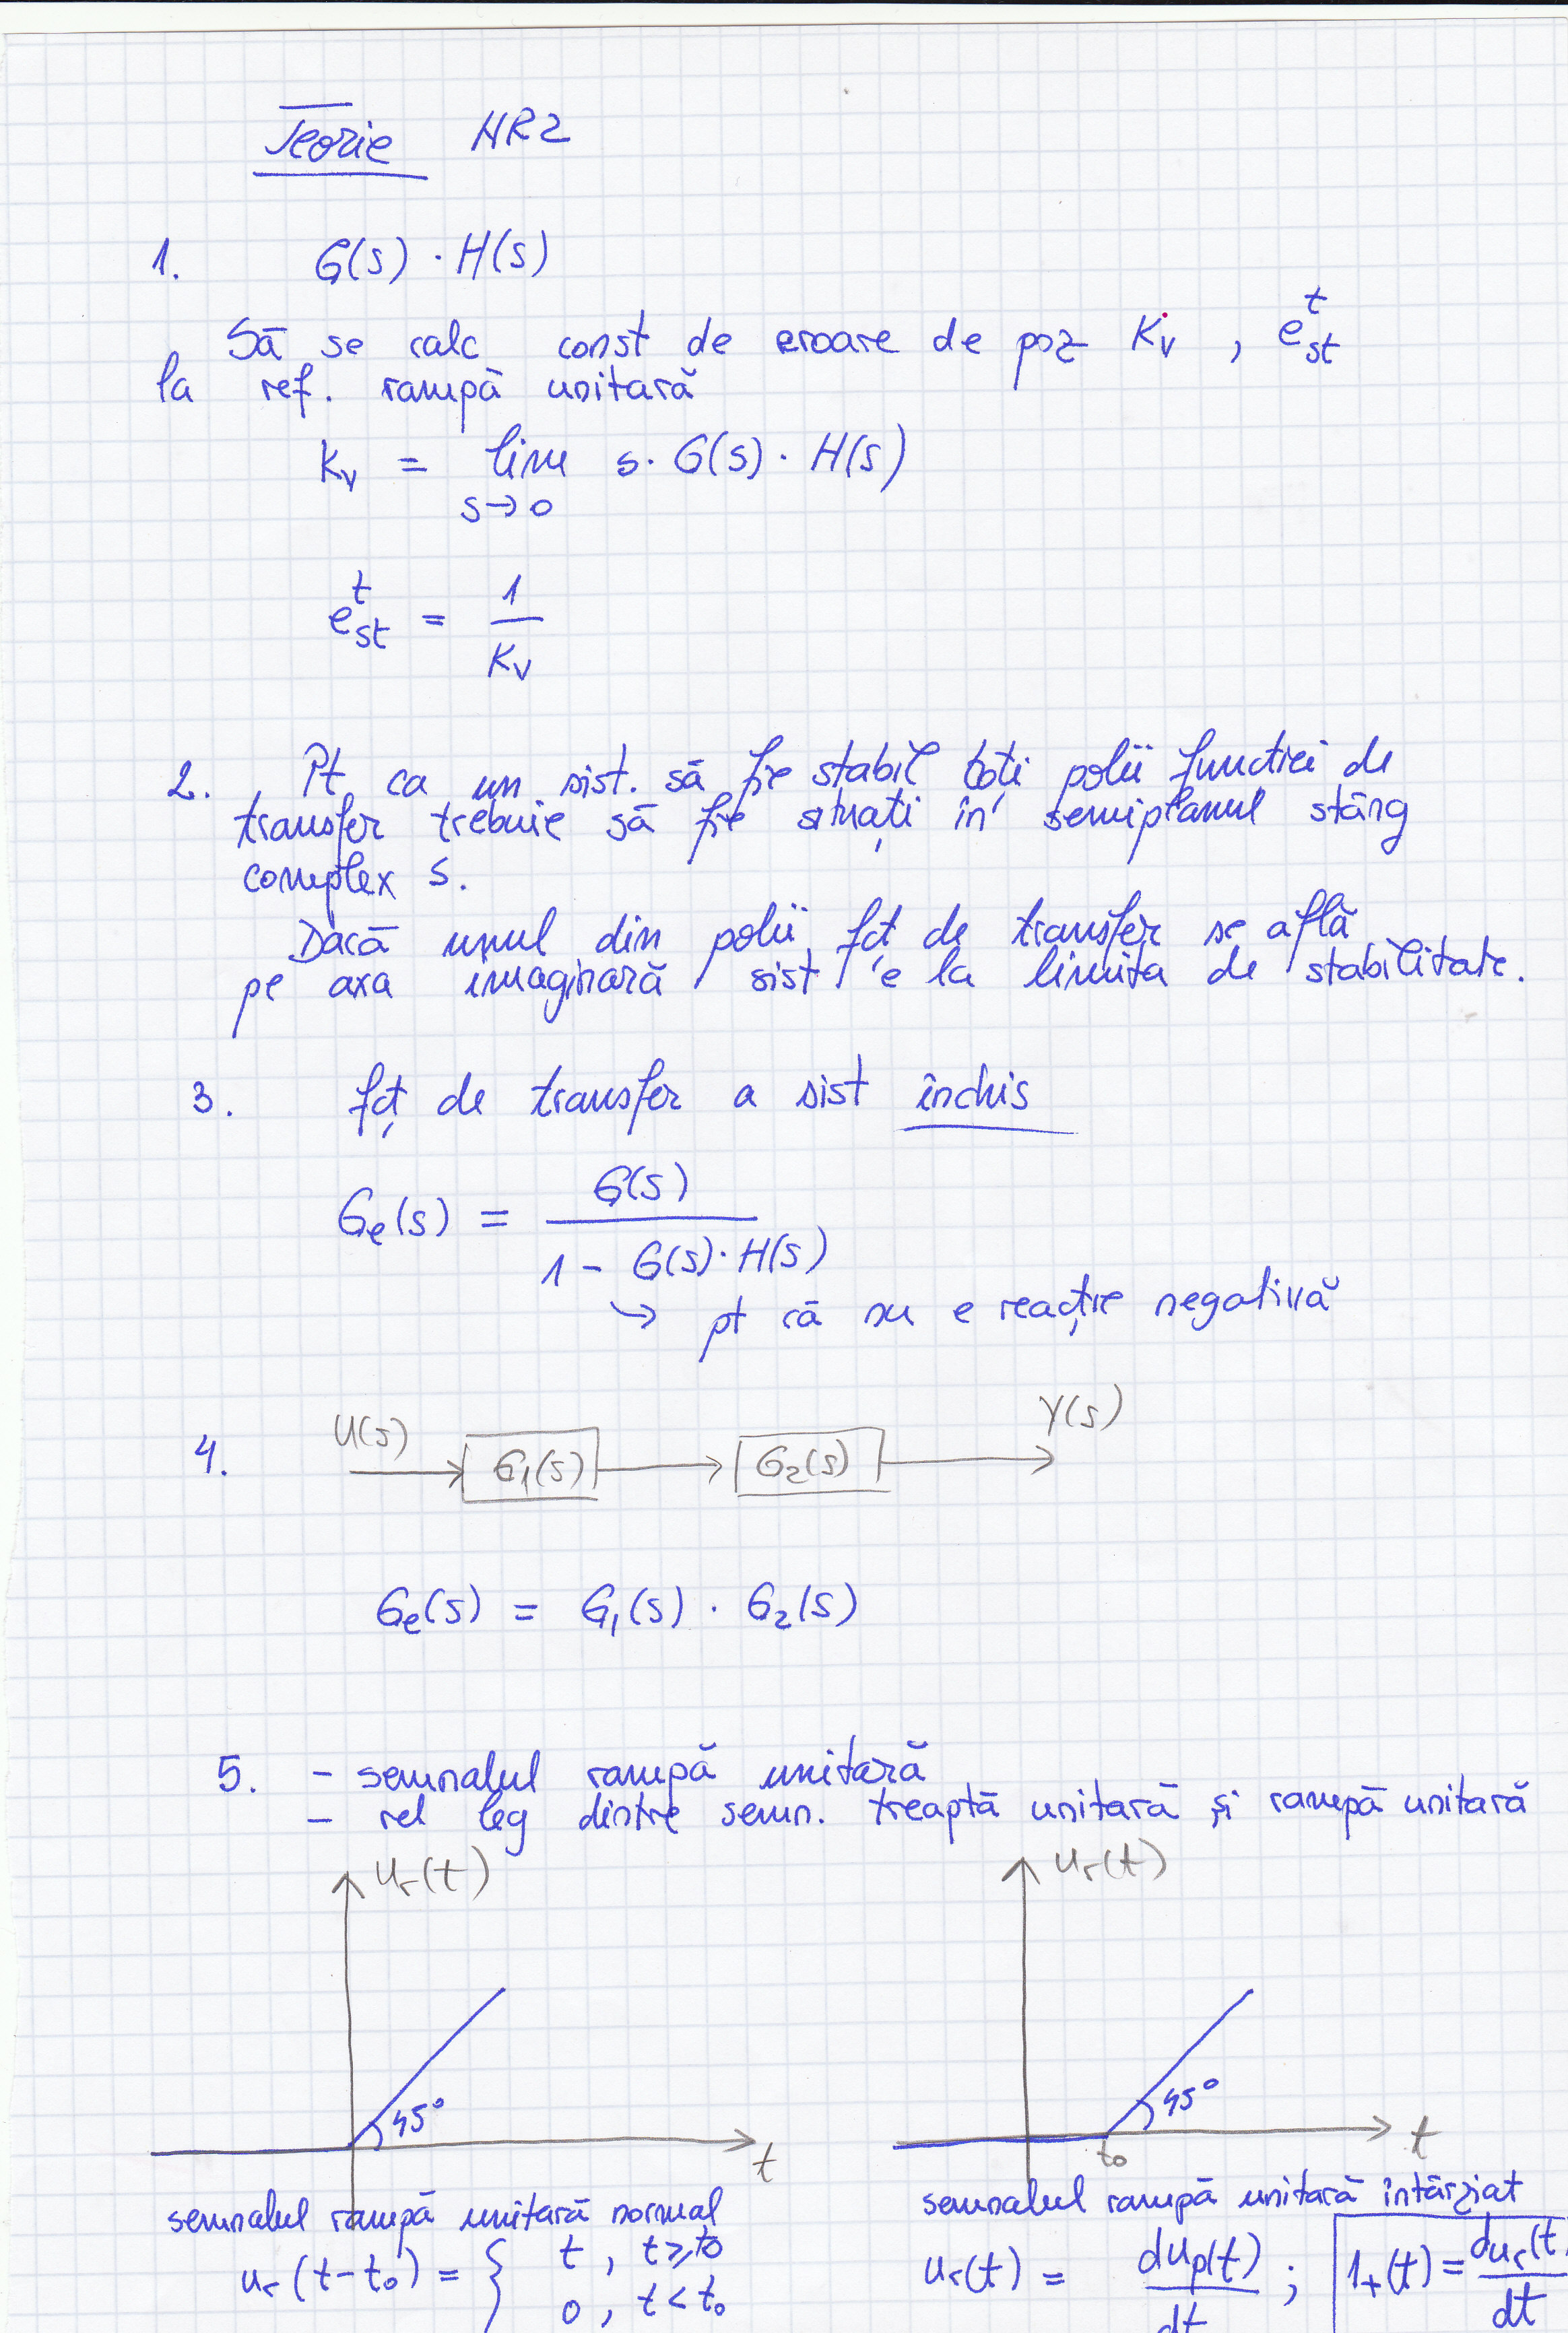 Teorie NR2
1. G(s) · H(s)
Să se calc const de eroare de poz Kv , e_st^t
la ref. rampă unitară
Kv = lim s · G(s) · H(s)
s→0
e_st^t = 1/Kv
2. Pt ca un sist. să fie stabil toți polii functiei de
transfer trebuie să fie situați în semiplanul stâng
complex s.
Dacă unul din polii fct de transfer se află
pe axa imaginară sist e la limita de stabilitate.
3. fcț de transfer a sist închis
Ge(s) = G(s) / 1 - G(s) · H(s)
↳ pt că nu e reacție negativă
4. U(s) G1(s) G2(s) Y(s)
Ge(s) = G1(s) · G2(s)
5. - semnalul rampă unitară
- rel leg dintre semn. treaptă unitară și rampă unitară
ur(t) ur(t)
45° 45°
t t0 t
semnalul rampă unitară normal
ur(t-t0) = { t , t ≥ t0
0 , t < t0
semnalul rampă unitară întârziat
ur(t) = dup(t)/dt ; 1+(t) = dur(t)/dt